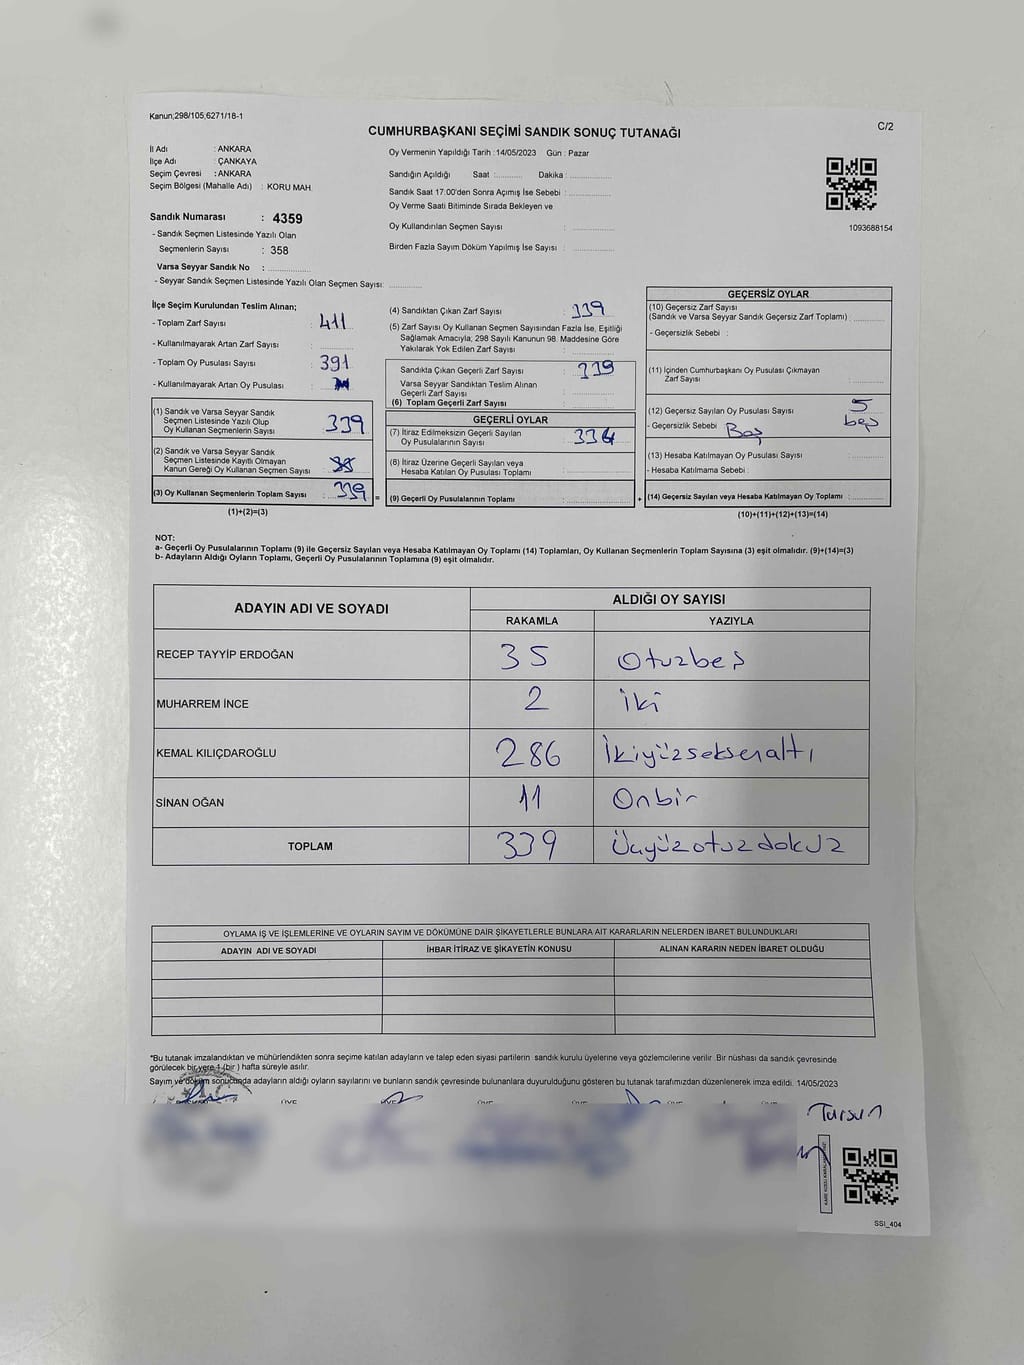 Kanun,298/105,6271/18-1
C/2
CUMHURBAŞKANI SEÇİMİ SANDIK SONUÇ TUTANAĞI
İl Adı : ANKARA
İlçe Adı : ÇANKAYA
Seçim Çevresi : ANKARA
Seçim Bölgesi (Mahalle Adı) : KORU MAH.
Sandık Numarası : 4359
- Sandık Seçmen Listesinde Yazılı Olan
Seçmenlerin Sayısı : 358
Varsa Seyyar Sandık No :
- Seyyar Sandık Seçmen Listesinde Yazılı Olan Seçmen Sayısı:
Oy Vermenin Yapıldığı Tarih : 14/05/2023 Gün : Pazar
Sandığın Açıldığı Saat : Dakika :
Sandık Saat 17:00'den Sonra Açımış İse Sebebi :
Oy Verme Saati Bitiminde Sırada Bekleyen ve
Oy Kullandırılan Seçmen Sayısı :
Birden Fazla Sayım Döküm Yapılmış İse Sayısı :
1093688154
İlçe Seçim Kurulundan Teslim Alınan;
- Toplam Zarf Sayısı : 411
- Kullanılmayarak Artan Zarf Sayısı :
- Toplam Oy Pusulası Sayısı : 391
- Kullanılmayarak Artan Oy Pusulası :
(1) Sandık ve Varsa Seyyar Sandık
Seçmen Listesinde Yazılı Olup
Oy Kullanan Seçmenlerin Sayısı : 339
(2) Sandık ve Varsa Seyyar Sandık
Seçmen Listesinde Kayıtlı Olmayan
Kanun Gereği Oy Kullanan Seçmen Sayısı :
(3) Oy Kullanan Seçmenlerin Toplam Sayısı : 339 =
(1)+(2)=(3)
(4) Sandıktan Çıkan Zarf Sayısı : 339
(5) Zarf Sayısı Oy Kullanan Seçmen Sayısından Fazla İse, Eşitliği
Sağlamak Amacıyla; 298 Sayılı Kanunun 98. Maddesine Göre
Yakılarak Yok Edilen Zarf Sayısı :
Sandıkta Çıkan Geçerli Zarf Sayısı : 339
Varsa Seyyar Sandıktan Teslim Alınan
Geçerli Zarf Sayısı :
(6) Toplam Geçerli Zarf Sayısı :
GEÇERLİ OYLAR
(7) İtiraz Edilmeksizin Geçerli Sayılan
Oy Pusulalarının Sayısı : 334
(8) İtiraz Üzerine Geçerli Sayılan veya
Hesaba Katılan Oy Pusulası Toplamı :
(9) Geçerli Oy Pusulalarının Toplamı : +
GEÇERSİZ OYLAR
(10) Geçersiz Zarf Sayısı
(Sandık ve Varsa Seyyar Sandık Geçersiz Zarf Toplamı) :
- Geçersizlik Sebebi :
(11) İçinden Cumhurbaşkanı Oy Pusulası Çıkmayan
Zarf Sayısı :
(12) Geçersiz Sayılan Oy Pusulası Sayısı : 5
- Geçersizlik Sebebi : Boş beş
(13) Hesaba Katılmayan Oy Pusulası Sayısı :
- Hesaba Katılmama Sebebi :
(14) Geçersiz Sayılan veya Hesaba Katılmayan Oy Toplamı :
(10)+(11)+(12)+(13)=(14)
NOT:
a- Geçerli Oy Pusulalarının Toplamı (9) ile Geçersiz Sayılan veya Hesaba Katılmayan Oy Toplamı (14) Toplamları, Oy Kullanan Seçmenlerin Toplam Sayısına (3) eşit olmalıdır. (9)+(14)=(3)
b- Adayların Aldığı Oyların Toplamı, Geçerli Oy Pusulalarının Toplamına (9) eşit olmalıdır.
ADAYIN ADI VE SOYADI ALDIĞI OY SAYISI
RAKAMLA YAZIYLA
RECEP TAYYİP ERDOĞAN 35 Otuzbeş
MUHARREM İNCE 2 İki
KEMAL KILIÇDAROĞLU 286 İkiyüzseksenaltı
SİNAN OĞAN 11 Onbir
TOPLAM 339 Üçyüzotuzdokuz
OYLAMA İŞ VE İŞLEMLERİNE VE OYLARIN SAYIM VE DÖKÜMÜNE DAİR ŞİKAYETLERLE BUNLARA AİT KARARLARIN NELERDEN İBARET BULUNDUKLARI
ADAYIN ADI VE SOYADI İHBAR İTİRAZ VE ŞİKAYETİN KONUSU ALINAN KARARIN NEDEN İBARET OLDUĞU
*Bu tutanak imzalandıktan ve mühürlendikten sonra seçime katılan adayların ve talep eden siyasi partilerin sandık kurulu üyelerine veya gözlemcilerine verilir .Bir nüshası da sandık çevresinde
görülecek bir yere 1 (bir ) hafta süreyle asılır.
Sayım ve döküm sonucunda adayların aldığı oyların sayılarını ve bunların sandık çevresinde bulunanlara duyurulduğunu gösteren bu tutanak tarafımızdan düzenlenerek imza edildi. 14/05/2023
Tursun
SSI_404